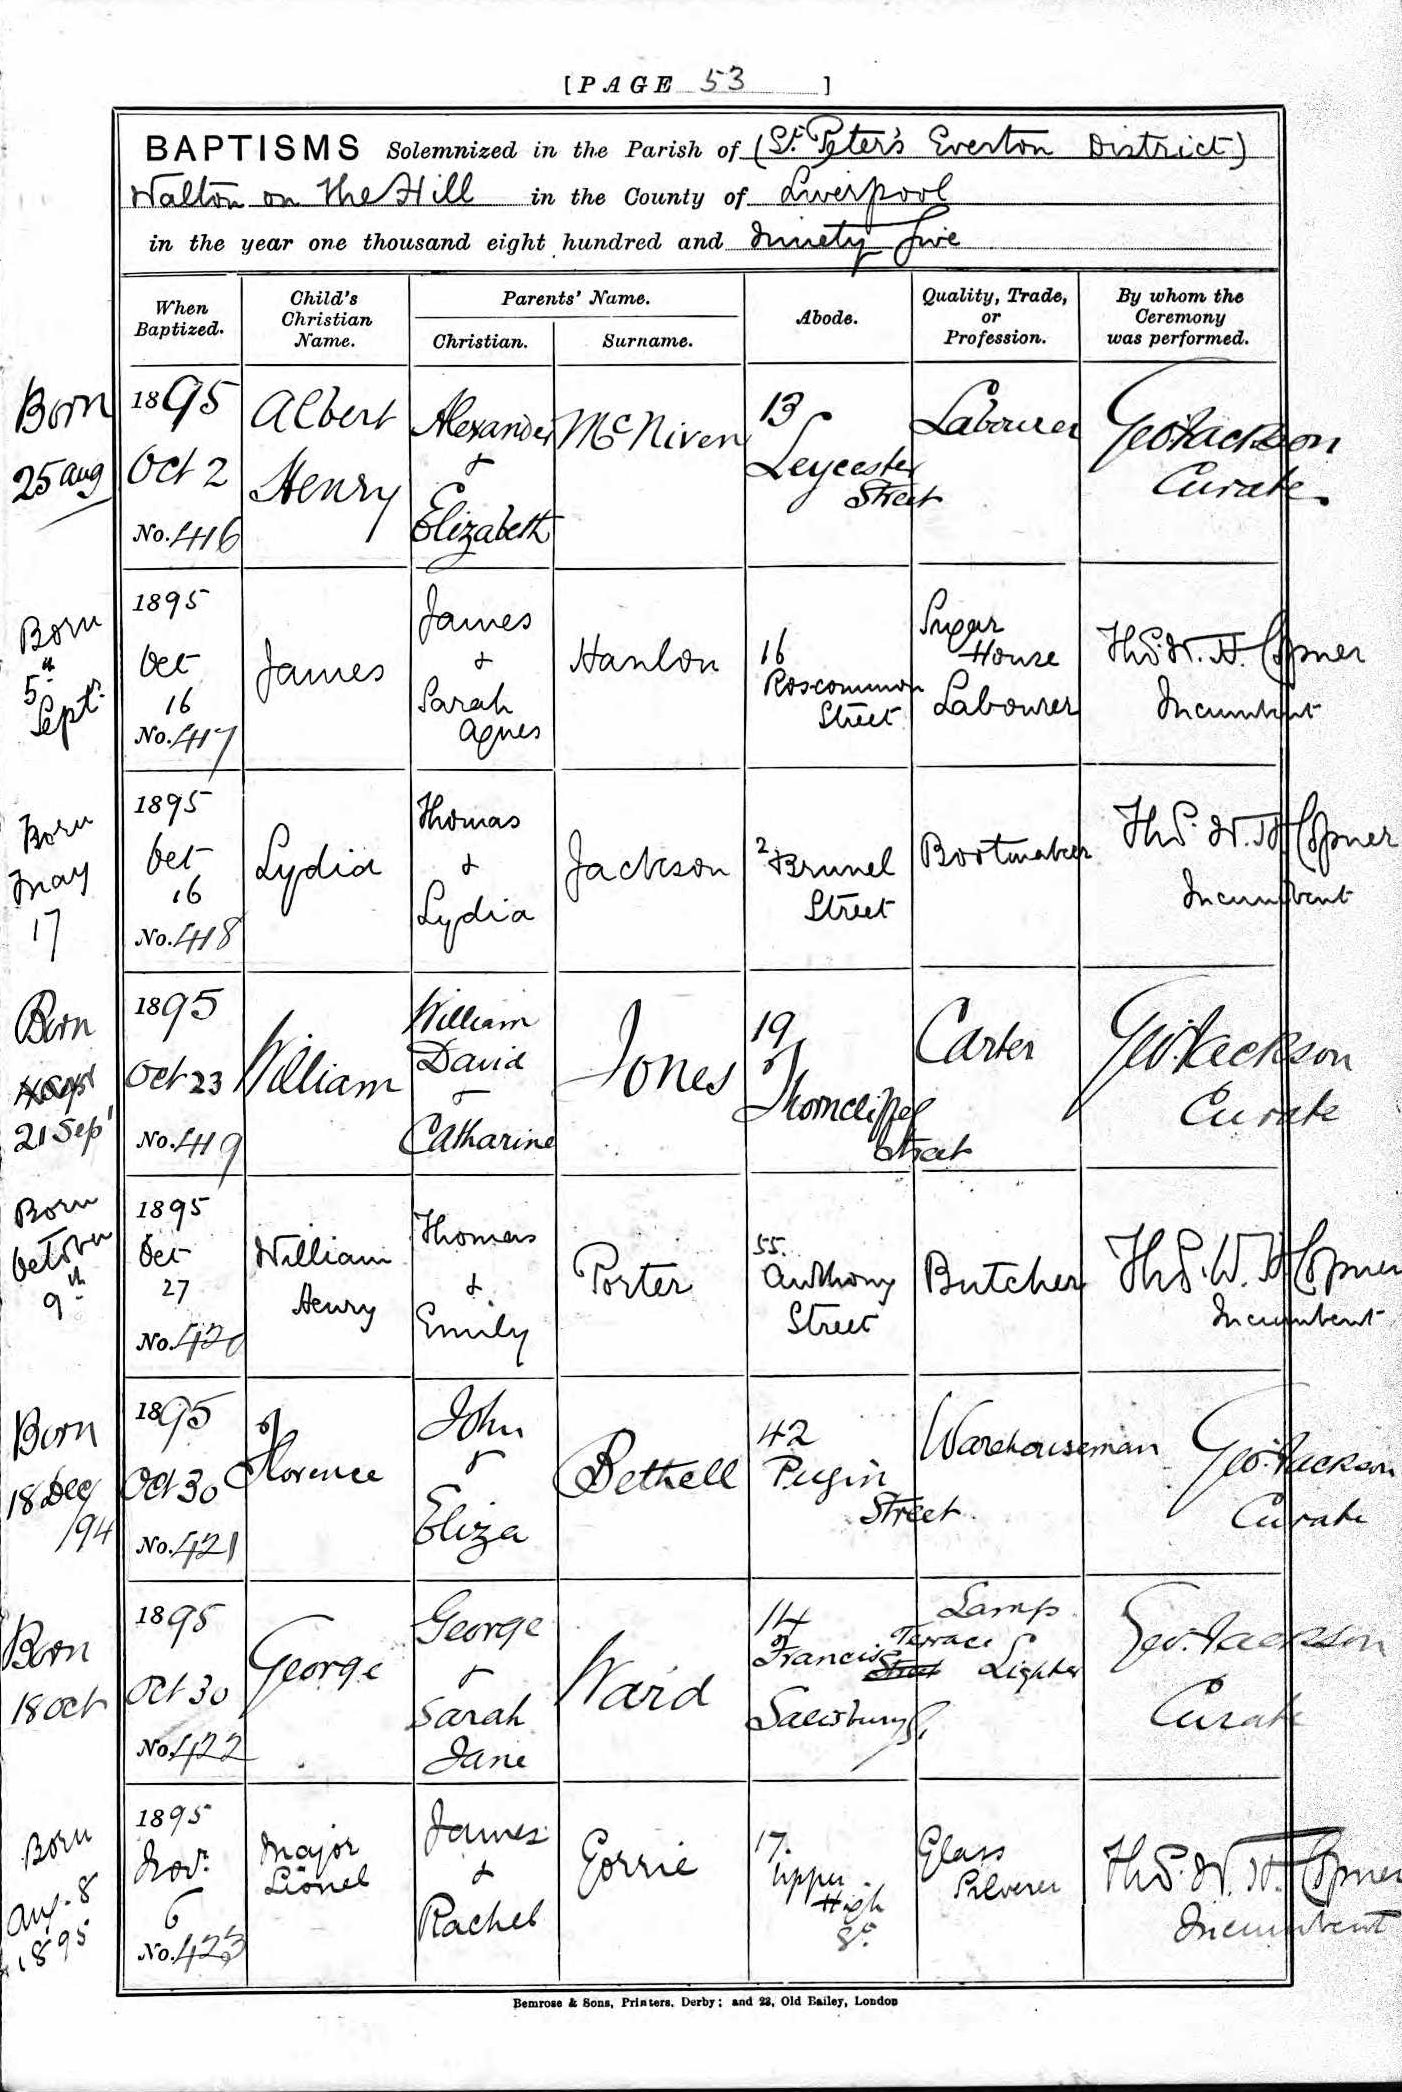 [PAGE 53 ]
BAPTISMS Solemnized in the Parish of (St. Peter's Everton District)
Walton on the Hill in the County of Liverpool
in the year one thousand eight hundred and ninety five
When Baptized.
Child's Christian Name.
Parents' Name.
Christian.
Surname.
Abode.
Quality, Trade, or Profession.
By whom the Ceremony was performed.
Born
25 Aug
1895
Oct 2
No. 416
Albert
Henry
Alexander
&
Elizabeth
McNiven
13
Leycester
Street
Labourer
Geo. Jackson
Curate.
Born
5th
Sept.
1895
Oct
16
No. 417
James
James
&
Sarah
Agnes
Hanlon
16
Roscommon
Street
Sugar
House
Labourer
Thos. W. H. Copner
Incumbent
Born
May
17
1895
Oct
16
No. 418
Lydia
Thomas
&
Lydia
Jackson
2 Brunel
Street
Bootmaker
Thos. W. H. Copner
Incumbent
Born
21 Sep
1895
Oct 23
No. 419
William
William
David
&
Catharine
Jones
19
Thorncliffe
Street
Carter
Geo. Jackson
Curate
Born
October
9th
1895
Oct
27
No. 420
William
Henry
Thomas
&
Emily
Porter
55.
Anthony
Street
Butcher
Thos. W. H. Copner
Incumbent
Born
18 Dec
/94
1895
Oct 30
No. 421
Florence
John
&
Eliza
Bethell
42
Pugin
Street
Warehouseman
Geo. Jackson
Curate
Born
18 Oct
1895
Oct 30
No. 422
George
George
&
Sarah
Jane
Ward
14
Terrace
Francis Street
Salisbury St.
Lamp
Lighter
Geo. Jackson
Curate
Born
Aug. 8
1895
1895
Nov.
6
No. 423
Major
Lionel
James
&
Rachel
Gorrie
17.
Upper
High
St.
Glass
Silverer
Thos. W. H. Copner
Incumbent
Bemrose & Sons, Printers, Derby; and 23, Old Bailey, London